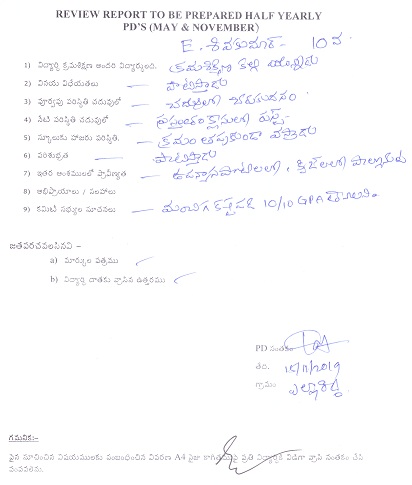 REVIEW REPORT TO BE PREPARED HALF YEARLY
PD'S (MAY & NOVEMBER)
E. శివకుమార్ - 10 వ
1) విద్యార్థి క్రమశిక్షణ అందరి విద్యార్థులది. క్రమశిక్షణ కల్గి
2) వినయ విధేయతలు — పాటిస్తాడు
3) పూర్వపు పరిస్థితి చదువులో —
4) నేటి పరిస్థితి చదువులో — ప్రస్తుతం క్లాసులో ఫస్ట్
5) స్కూలుకు హాజరు పరిస్థితి. — క్రమం తప్పకుండా వస్తాడు
6) పరిశుభ్రత — పాటిస్తాడు
7) ఇతర అంశములలో ప్రావీణ్యత —
8) అభిప్రాయాలు / సలహాలు
9) కమిటీ సభ్యుల సూచనలు — మంచిగ కష్టపడి 10/10 GPA
జతపరచవలసినవి :-
a) మార్కుల పత్రము
b) విద్యార్థి దాతకు వ్రాసిన ఉత్తరము
PD సంతకం
తేది. 15/11/2019
గ్రామం
గమనిక:-
పైన సూచించిన విషయములకు సంబంధించిన వివరణ A4 సైజు కాగితముపై ప్రతి విద్యార్థికి విడిగా వ్రాసి సంతకం చేసి
పంపవలెను.